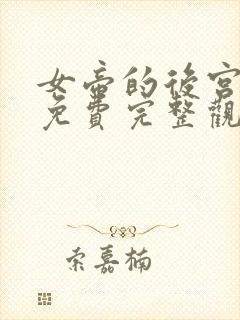 女帝的後宮
免費完整觀
索嘉楠